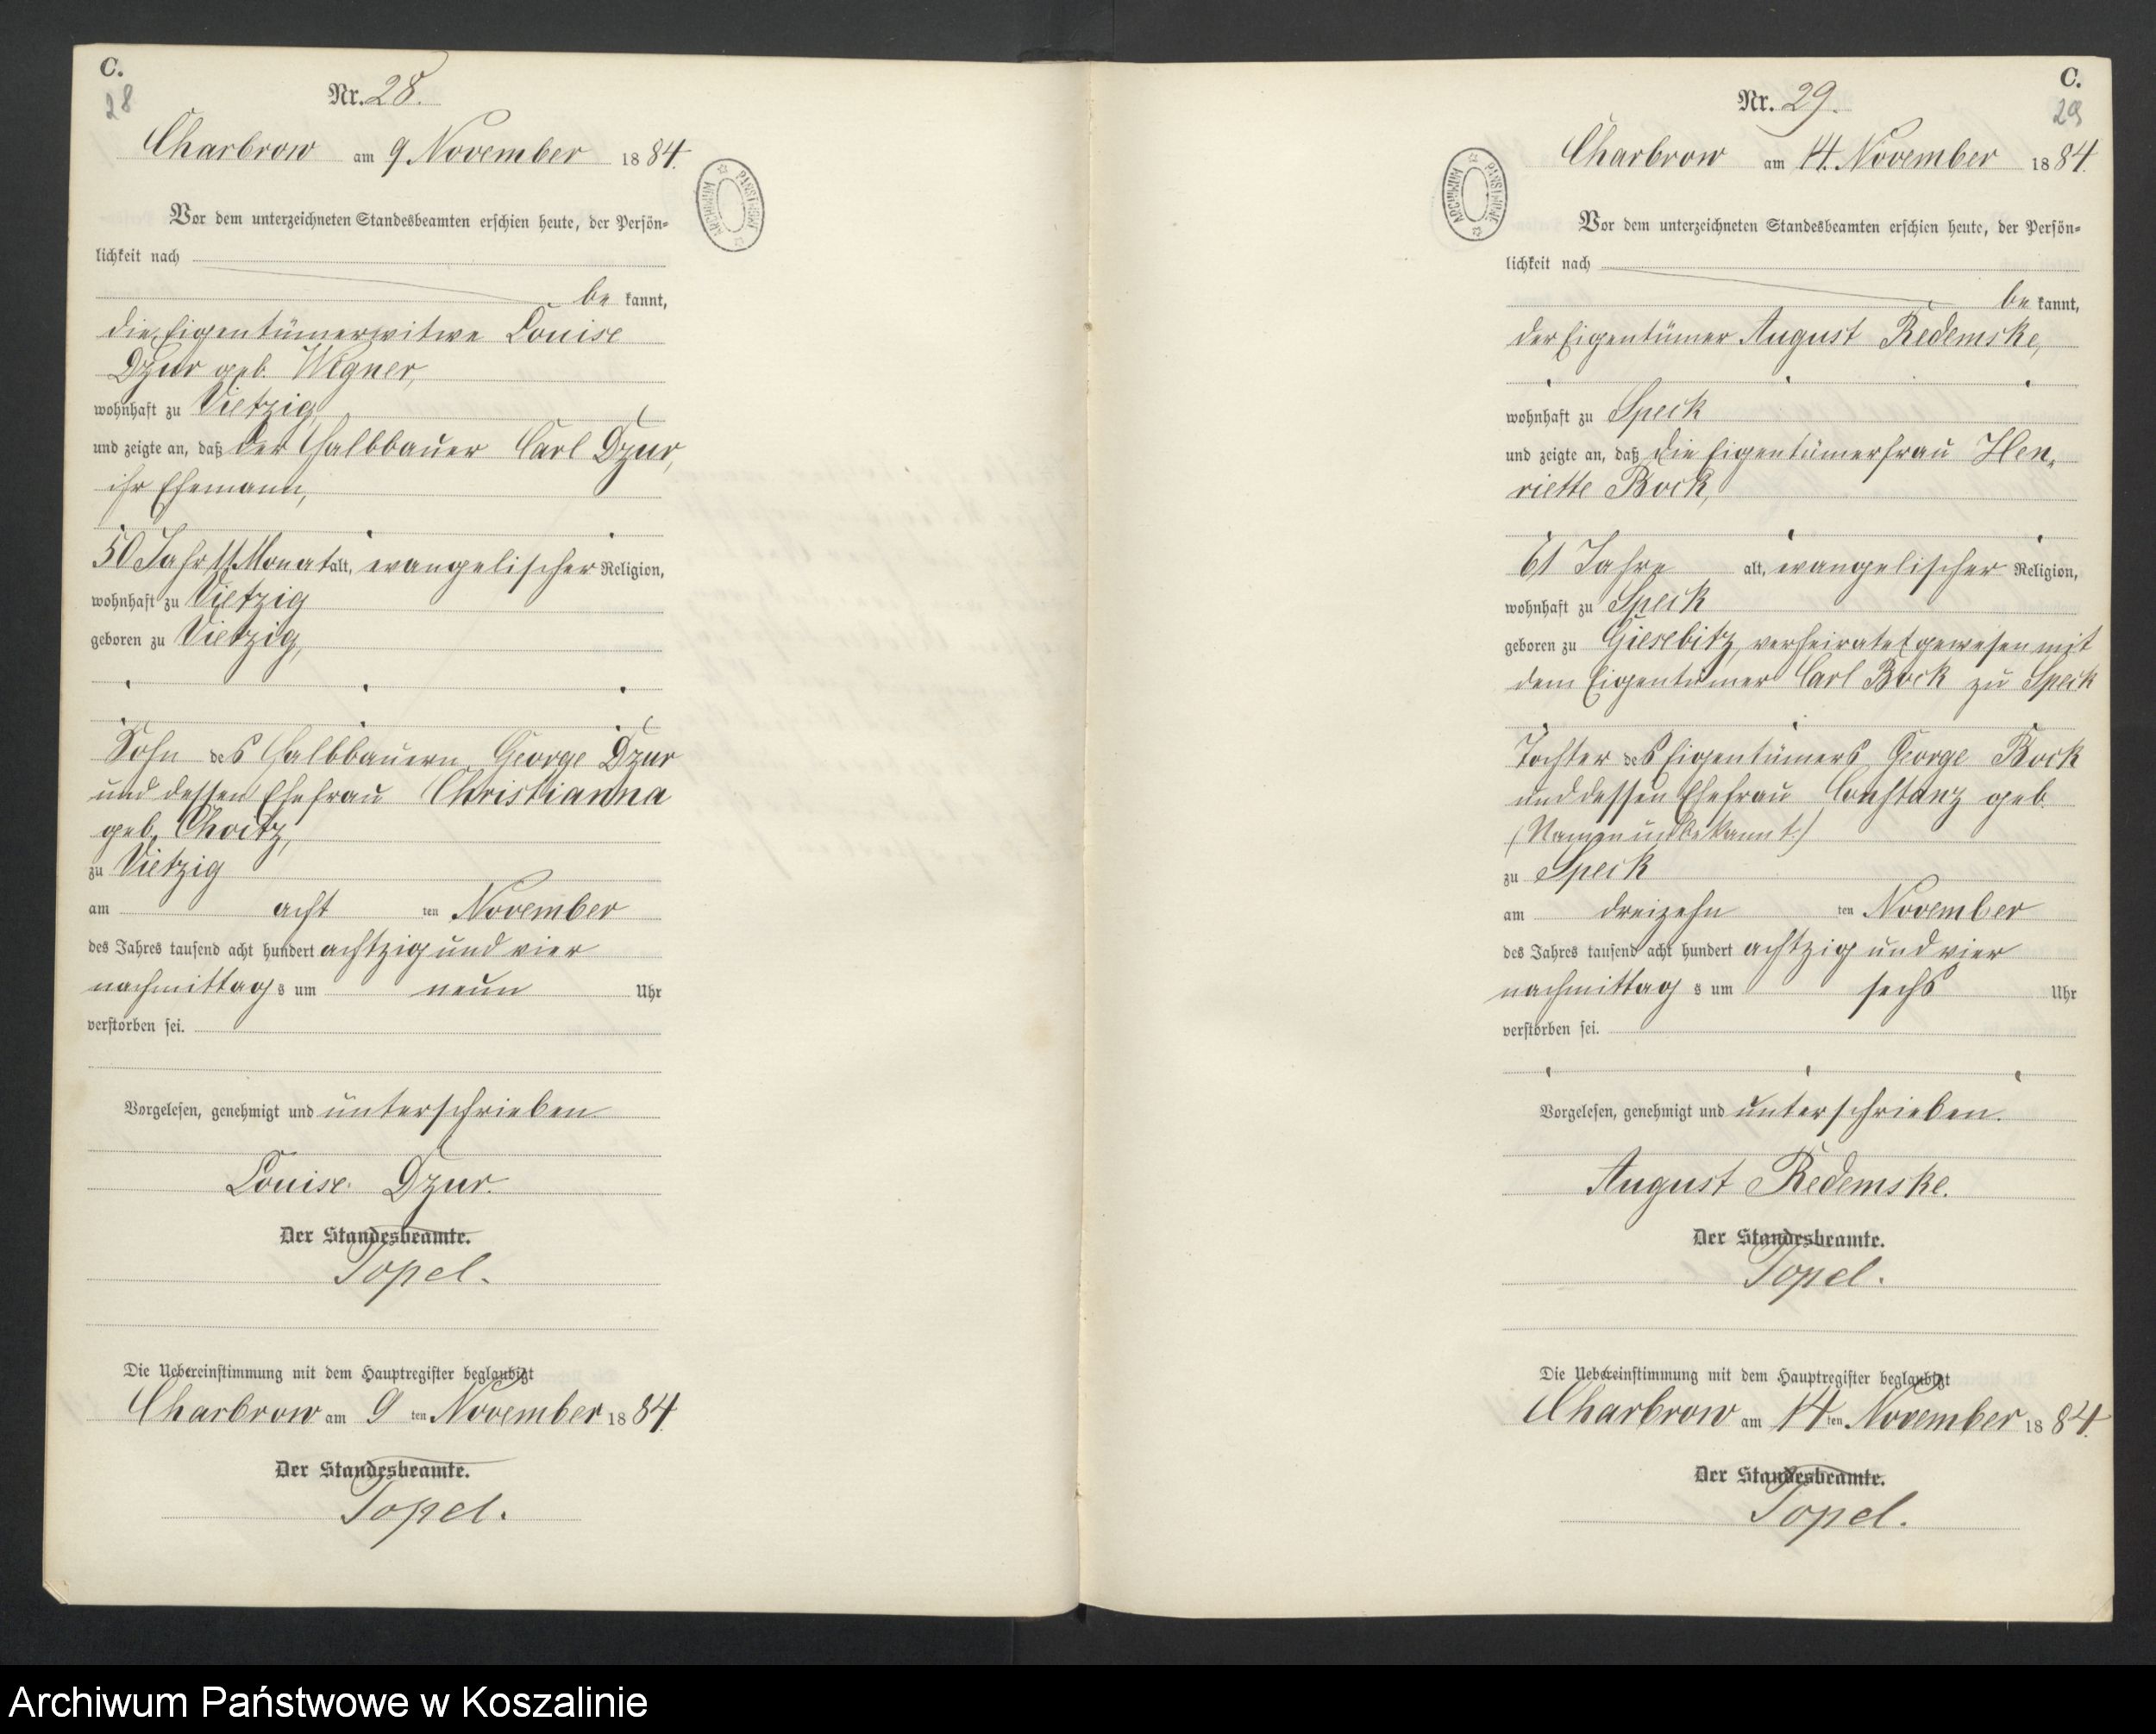 C.
28
Nr. 28.
Charbrow am 9 November 1884.
Vor dem unterzeichneten Standesbeamten erschien heute, der Persön=
lichkeit nach
be kannt,
die Eigentümerwitwe Louise
Dzur geb. Wegner,
wohnhaft zu Vietzig
und zeigte an, daß der Halbbauer Carl Dzur,
ihr Ehemann,
50 Jahr 11 Monat alt, evangelischer Religion,
wohnhaft zu Vietzig
geboren zu Vietzig,
Sohn des Halbbauern George Dzur
und dessen Ehefrau Christianna
geb. Choitz,
zu Vietzig
am acht ten November
des Jahres tausend acht hundert achtzig und vier
nachmittags um neun Uhr
verstorben sei.
Vorgelesen, genehmigt und unterschrieben
Louise Dzur.
Der Standesbeamte.
Topel.
Die Uebereinstimmung mit dem Hauptregister beglaubigt
Charbrow am 9 ten November 1884.
Der Standesbeamte.
Topel.
ARCHIWUM PAŃSTWOWE
C.
29
Nr. 29.
Charbrow am 14. November 1884.
Vor dem unterzeichneten Standesbeamten erschien heute, der Persön=
lichkeit nach
be kannt,
der Eigentümer August Redemske,
wohnhaft zu Speck
und zeigte an, daß die Eigentümerfrau Hen-
riette Bock,
61 Jahre alt, evangelischer Religion,
wohnhaft zu Speck
geboren zu Giesebitz, verheiratet gewesen mit
dem Eigentümer Carl Bock zu Speck
Tochter des Eigentümers George Bock
und dessen Ehefrau Constanz geb
(Namen unbekannt)
zu Speck
am dreizehn ten November
des Jahres tausend acht hundert achtzig und vier
nachmittag s um sechs Uhr
verstorben sei.
Vorgelesen, genehmigt und unterschrieben.
August Redemske.
Der Standesbeamte.
Topel.
Die Uebereinstimmung mit dem Hauptregister beglaubigt
Charbrow am 14 ten November 1884.
Der Standesbeamte.
Topel.
ARCHIWUM PAŃSTWOWE
Archiwum Państwowe w Koszalinie